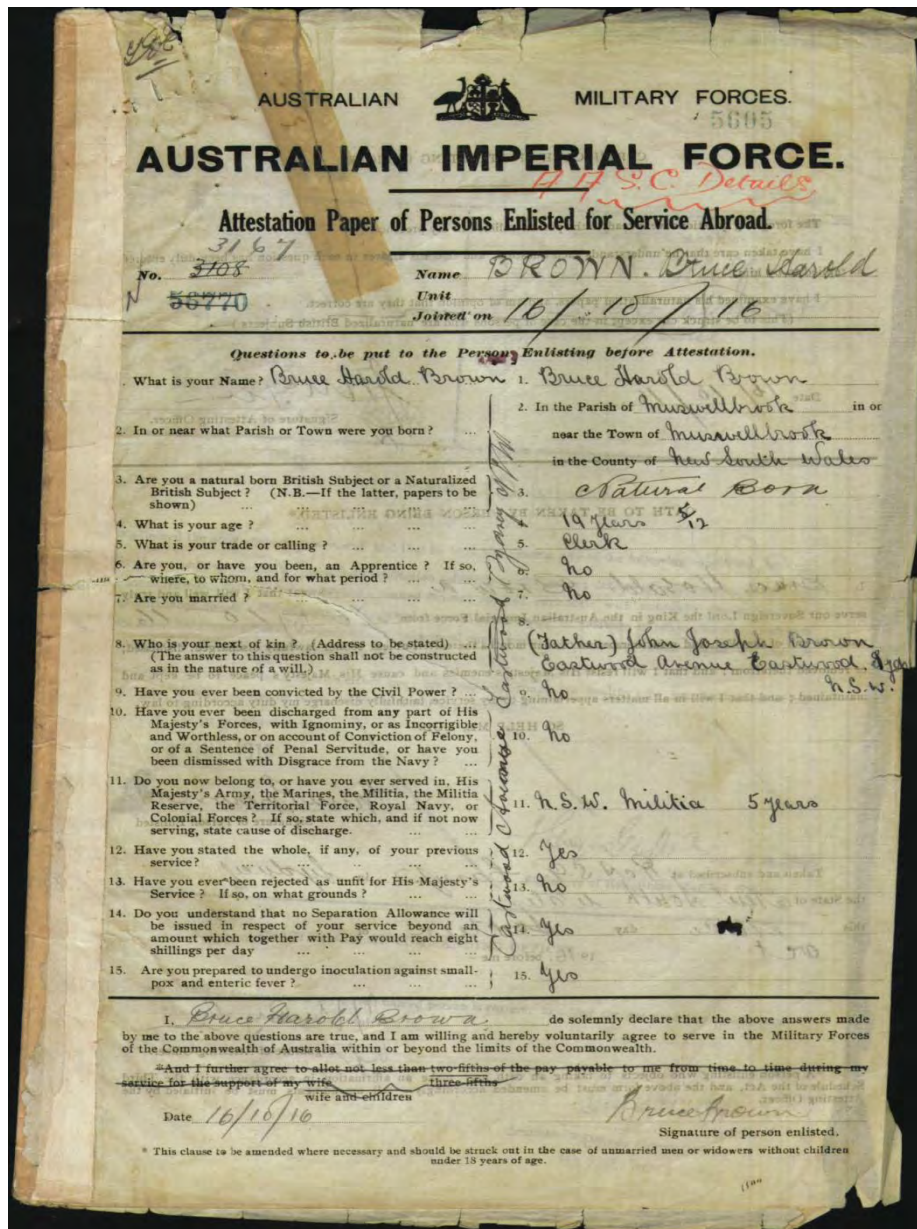 AUSTRALIAN MILITARY FORCES.
5605
AUSTRALIAN IMPERIAL FORCE.
A A S.C. Details
Attestation Paper of Persons Enlisted for Service Abroad.
3167
No. 3108 Name BROWN. Bruce Harold
56770 Unit
Joined on 16/10/16
Questions to be put to the Person Enlisting before Attestation.
1. What is your Name? Bruce Harold Brown 1. Bruce Harold Brown
2. In the Parish of Muswellbrook in or
2. In or near what Parish or Town were you born? ... near the Town of Muswellbrook
in the County of New South Wales
3. Are you a natural born British Subject or a Naturalized
British Subject? (N.B.—If the latter, papers to be 3. Natural Born
shown) ... ... ... ...
4. What is your age? ... ... ... ... 4. 19 years 5/12
5. What is your trade or calling? ... ... ... 5. Clerk
6. Are you, or have you been, an Apprentice? If so, 6. No
where, to whom, and for what period? ... ...
7. Are you married? ... ... ... ... 7. No
8.
8. Who is your next of kin? (Address to be stated) ... (Father) John Joseph Brown
(The answer to this question shall not be constructed Eastwood Avenue Eastwood. Syd
as in the nature of a will.) N.S.W.
9. Have you ever been convicted by the Civil Power? ... 9. No
10. Have you ever been discharged from any part of His
Majesty's Forces, with Ignominy, or as Incorrigible
and Worthless, or on account of Conviction of Felony, 10. No
or of a Sentence of Penal Servitude, or have you
been dismissed with Disgrace from the Navy? ...
11. Do you now belong to, or have you ever served in, His
Majesty's Army, the Marines, the Militia, the Militia
Reserve, the Territorial Force, Royal Navy, or 11. N.S.W. Militia 5 years
Colonial Forces? If so, state which, and if not now
serving, state cause of discharge. ... ...
12. Have you stated the whole, if any, of your previous 12. Yes
service? ... ... ... ... ...
13. Have you ever been rejected as unfit for His Majesty's 13. No
Service? If so, on what grounds? ... ...
14. Do you understand that no Separation Allowance will
be issued in respect of your service beyond an 14. Yes
amount which together with Pay would reach eight
shillings per day ... ... ... ...
15. Are you prepared to undergo inoculation against small- 15. Yes
pox and enteric fever? ... ... ...
Eastwood Avenue Eastwood Sydney NSW
I, Bruce Harold Brown do solemnly declare that the above answers made
by me to the above questions are true, and I am willing and hereby voluntarily agree to serve in the Military Forces
of the Commonwealth of Australia within or beyond the limits of the Commonwealth.
*And I further agree to allot not less than two-fifths of the pay payable to me from time to time during my
service for the support of my wife three-fifths
wife and children
Date 16/10/16 Bruce Brown
Signature of person enlisted.
* This clause to be amended where necessary and should be struck out in the case of unmarried men or widowers without children
under 18 years of age.